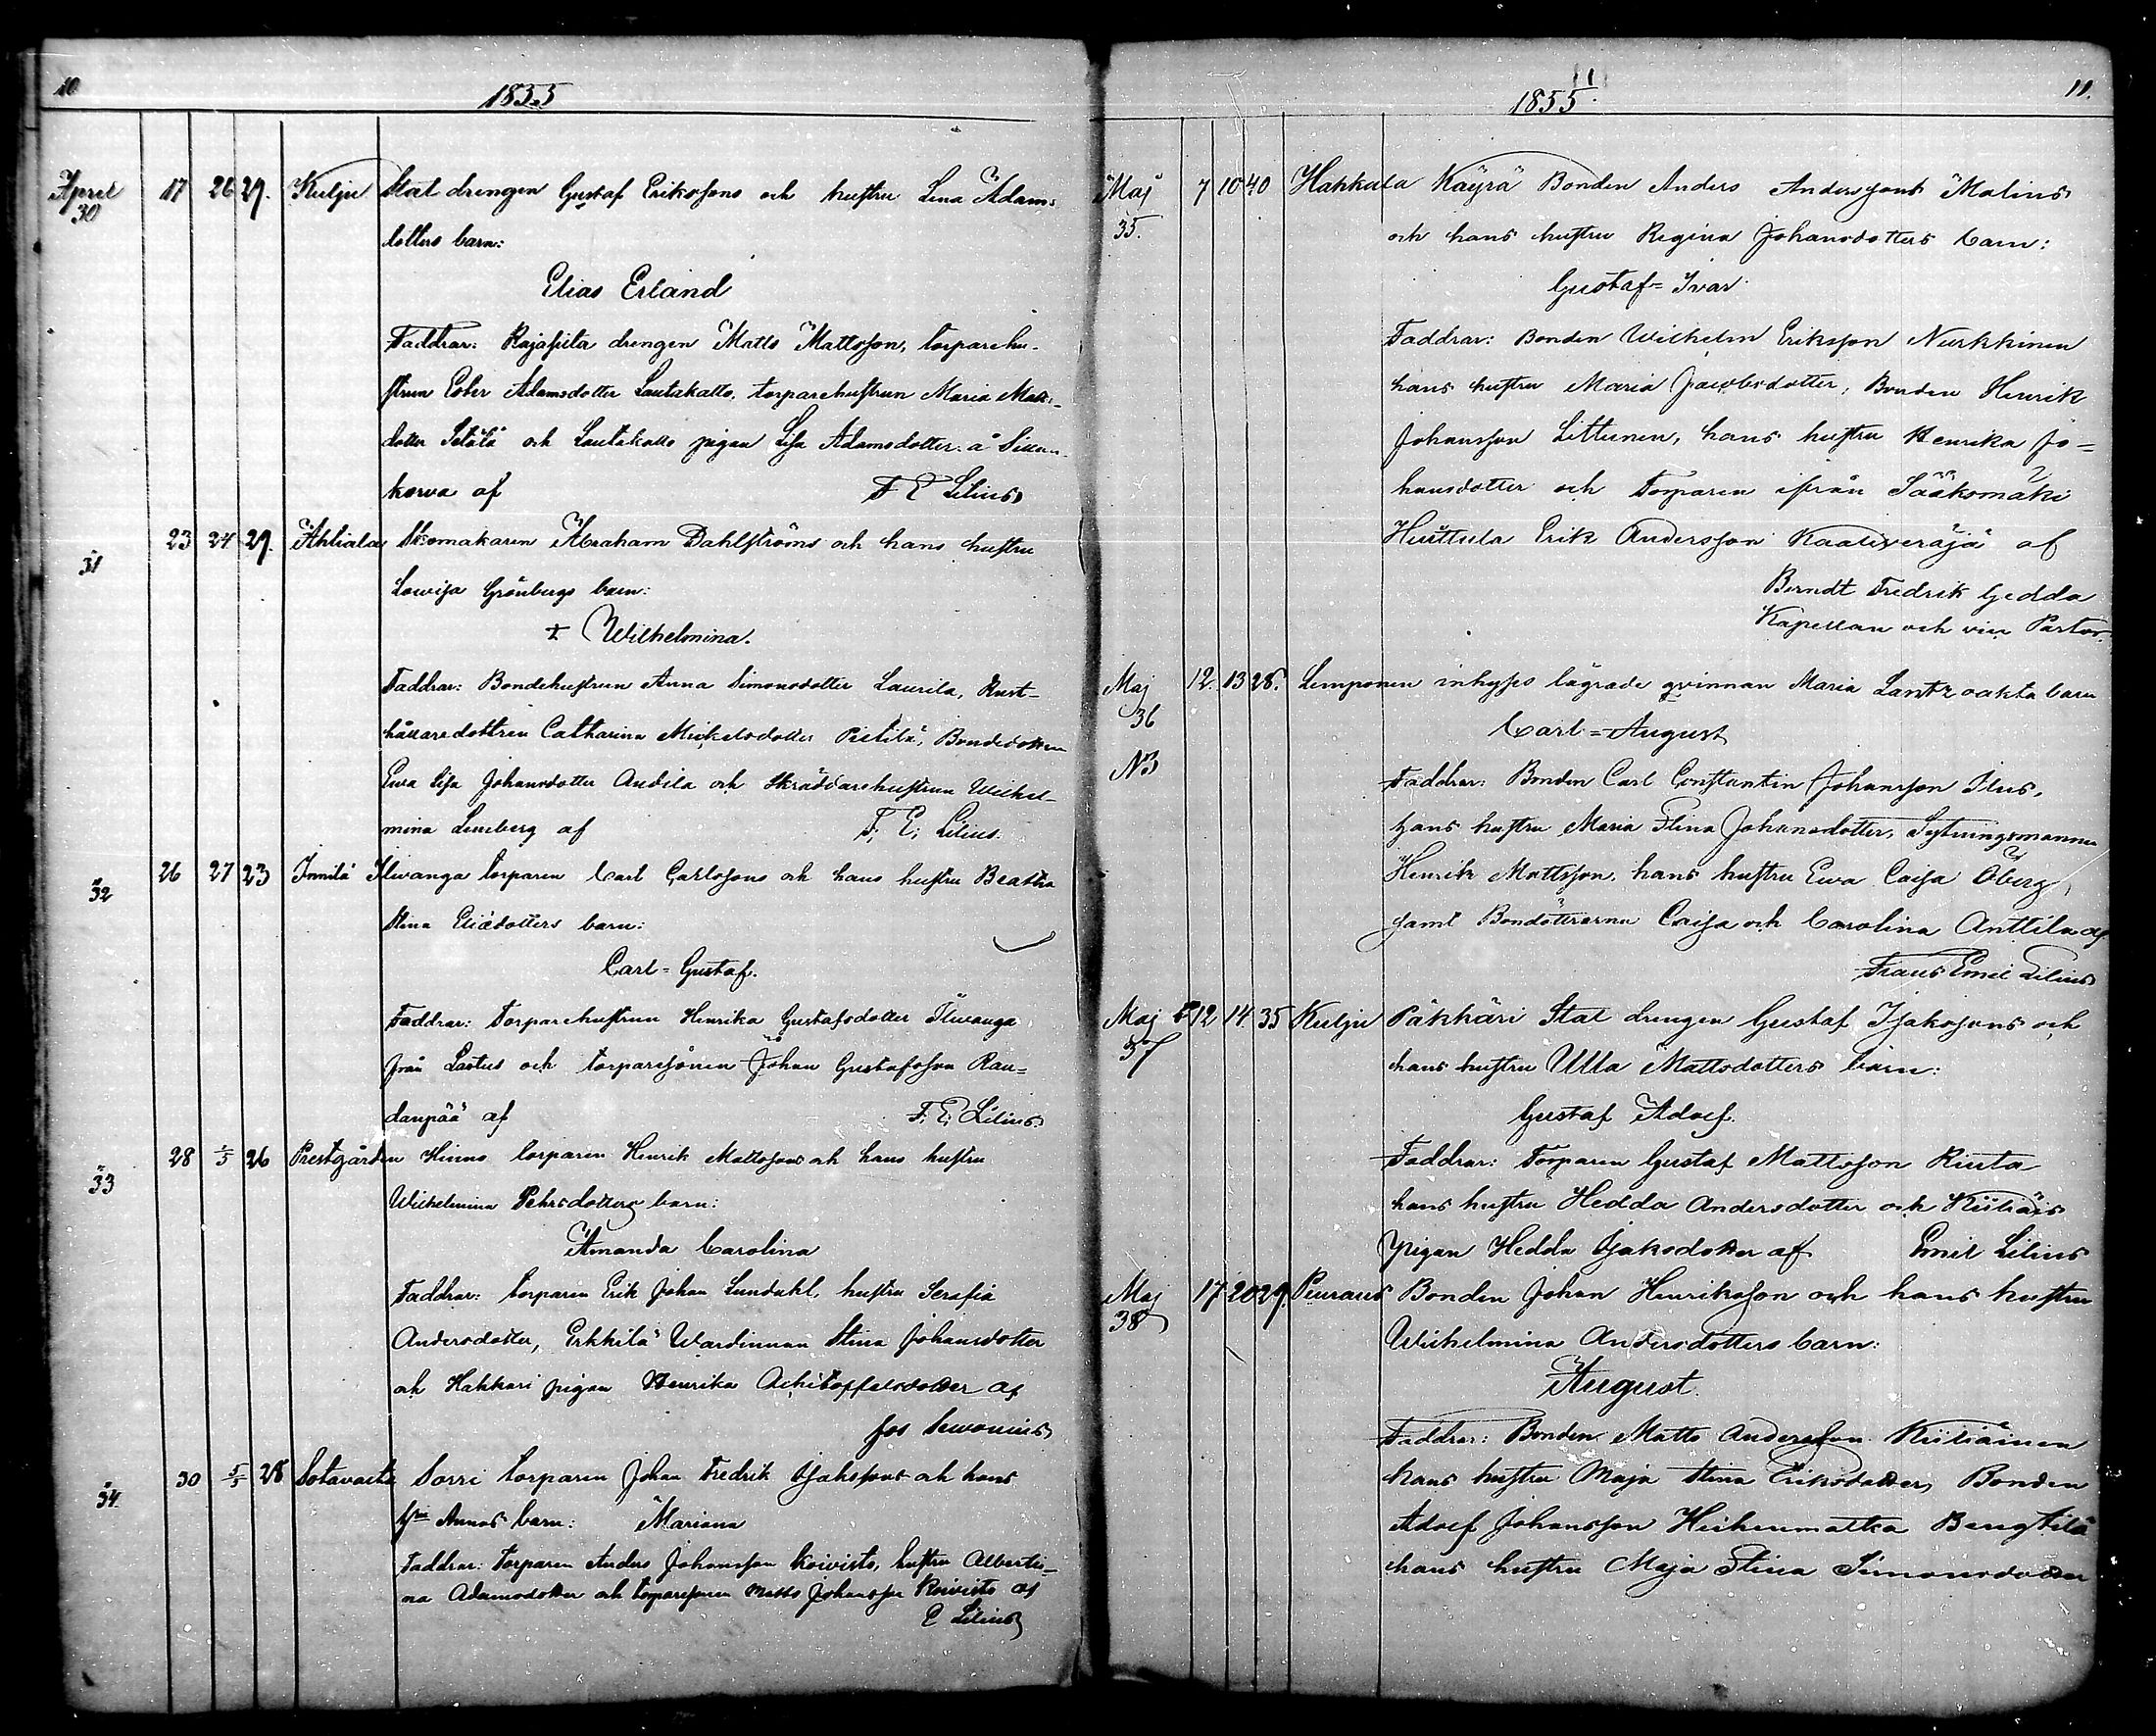 10
1855
April 17 26 29. Kulju Stat drengen Gustaf Erikssons och hustru Lena Adams
30
dotters barn:
Elias Erland
Faddrar: Rajasilta drengen Matts Mattsson, torparehu-
strun Ester Adamsdotter Lautakatto, torparehustrun Maria Matts-
dotter Setälä och Lautakatto pigan Lisa Adamsdotter å
korva af F E Lilius
23 24 29. Ahtiala Skomakaren Abraham Dahlströms och hans hustru
31
Lowisa Grönbergs barn:
+ Wilhelmina.
Faddrar: Bondehustrun Anna Simonsdotter Laurila, Rust-
hållaredottren Catharina Mickelsdotter Pietilä, Bondedottren
Ewa Lisa Johansdotter Andila och Skräddarehustrun Wilhel-
mina Leneberg af F. E. Lilius.
26 27 23 Innilä Ilwanga torparen Carl Carlssons och hans hustru Beatha
32
Stina Eliædotters barn:
Carl-Gustaf.
Faddrar: Torparehustrun Henrika Gustafsdotter Ilwanga
från Lastus och torparesonen Johan Gustafsson Rau-
danpää af F. E. Lilius.
28 1/5 26 Prestgården Hinno torparen Henrik Mattssons och hans hustru
33
Wilhelmina Pehrsdotters barn:
Amanda Carolina
Faddrar: torparen Erik Johan Lundahl, hustru Serafia
Andersdotter, Erkkilä Wärdinnan Stina Johansdotter
och Hakkari pigan Henrika Achitoffelsdotter af
Jos Sewonius
30 5/5 28 Sotavalta Sorri torparen Johan Fredrik Isakssons och hans
34
hu Annas barn: Mariana
Faddrar: Torparen Anders Johansson Koivisto, hustru Alberti-
na Adamsdotter och torparesonen Matts Johansson Koivisto af
E Lilius
11.
1855.
Maj 7 10 40 Hakkala Käyrä Bonden Anders Anderssons Malins
35.
och hans hustru Regina Johansdotters barn:
Gustaf-Ivar
Faddrar: Bonden Wilhelm Eriksson Nurkkinen
hans hustru Maria Jacobsdotter, Bonden Henrik
Johansson Littunen, hans hustru Henrika Jo-
hansdotter och Torparen ifrån Sääksmäki
Huittula Erik Andersson af
Berndt Fredrik Gedda
Kapellan och vice Pastor
Maj 12. 13 28. Lemponen inhyses lägrade qvinnan Maria Lantz oäkta barn
36
Carl-August
NB
Faddrar: Bonden Carl Constantin Johansson Ilus,
hans hustru Maria Stina Johansdotter, Sytningsmannen
Henrik Mattsson, hans hustru Ewa Caisa Öberg,
samt Bondöttrarne Caisa och Carolina Anttila af
Frans Emil Lilius
Maj 12 14 35 Kulju Päkkäri Stat drengen Gustaf Isakssons och
37
hans hustru Ulla Mattsdotters barn:
Gustaf Adolf.
Faddrar: Torparen Gustaf Mattsson Rinta
hans hustru Hedda Andersdotter och Kiiliäis
pigan Hedda Isaksdotter af Emil Lilius
Maj 17 20 29. Peuraus Bonden Johan Henriksson och hans hustru
38
Wilhelmina Andersdotters barn:
August.
Faddrar: Bonden Matts Andersson Kiiliäinen
hans hustru Maja Stina Eriksdotter, Bonden
Adolf Johansson Heikenmatka Bengtilä
hans hustru Maja Stina Simonsdotter